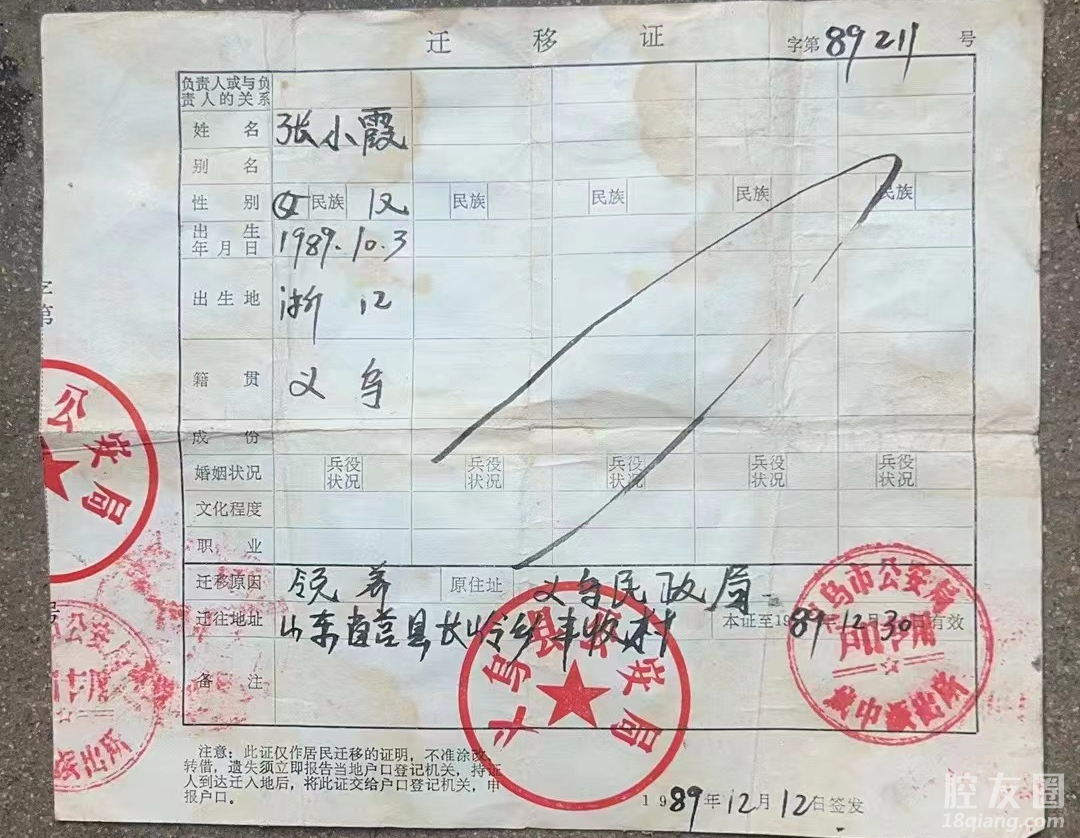 迁 移 证
字第 89211 号
负责人或与负
责人的关系
姓 名 张小霞
别 名
性 别 女 民族 汉 民族 民族 民族 民族
出 生
年月日 1989.10.3
出生地 浙江
籍 贯 义乌
成 份
婚姻状况 兵役状况 兵役状况 兵役状况 兵役状况 兵役状况
文化程度
职 业
迁移原因 领养 原住址 义乌民政局
迁往地址 山东省莒县长岭乡丰收村 本证至1989年12月30日有效
备 注
注意：此证仅作居民迁移的证明，不准涂改、
转借，遗失须立即报告当地户口登记机关，持证
人到达迁入地后，将此证交给户口登记机关，申
报户口。
1989年12月12日签发
字第
公安局
义乌县公安局
义乌市公安局
城中派出所
腔友圈
18qiang.com